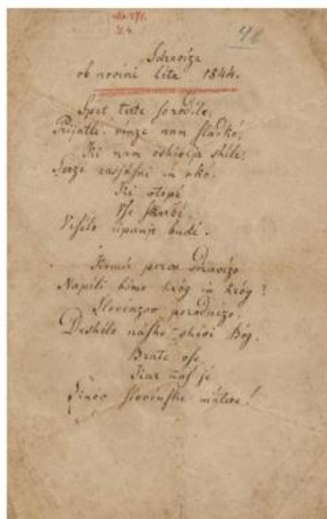 48
Sdraviza
ob novini léta 1844.
Spet terte ſo rodile,
Prijatli, vinze nam ſladkó,
Ki nam oshivlja shile,
Serzé rasjáſni in oko,
Ki utopi
Vſe ſkerbi,
upanje budi.
Komú sdravizo
Napili bomo króg in króg?
Slovenzov porodnizo,
Deshélo náſho shivi Bóg,
Brate vſe,
Kar naſ je
Sinov ſlovénſke mátere!